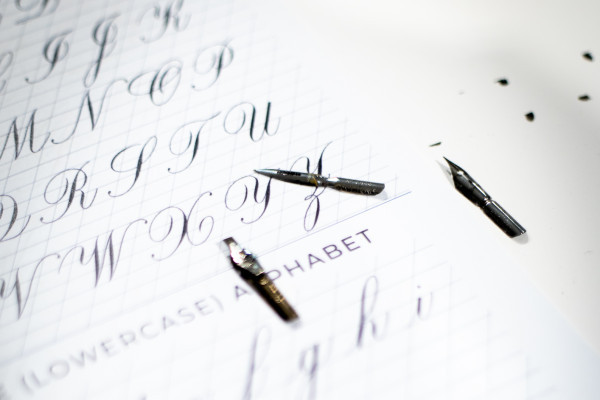 I J K
M N O P
Q R S T U
V W X Y Z
(LOWERCASE) ALPHABET
f g h i